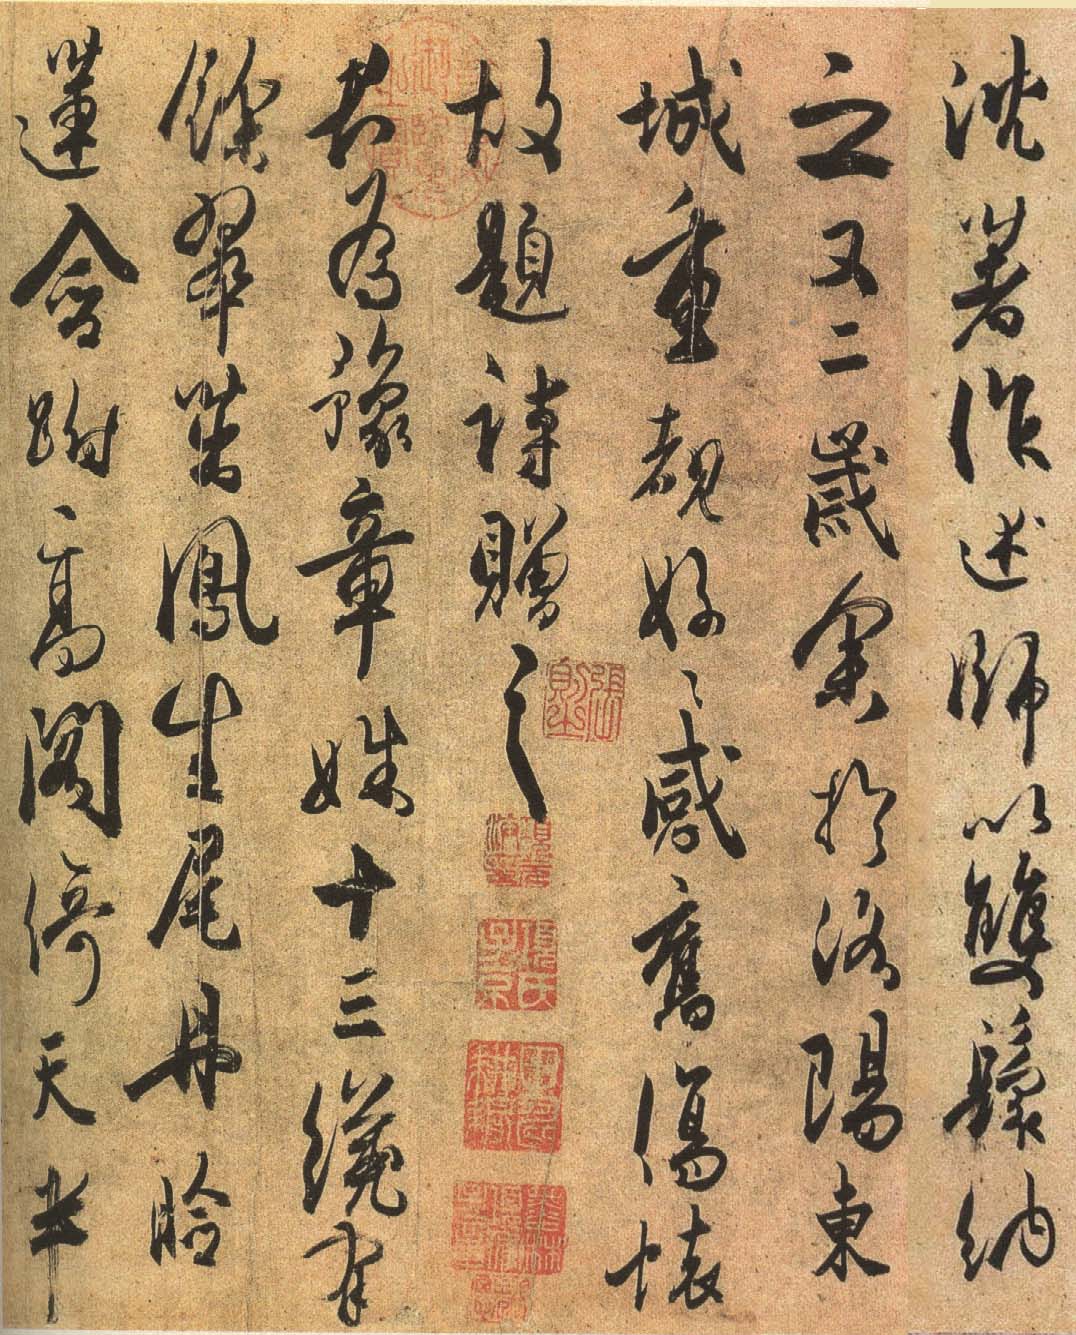 沈著作述師以雙鬟納
之又二歲余於洛陽東
城重覩好〻感舊傷懷
故題詩贈之
君為豫章姝十三纔有
餘翠茁鳳生尾丹臉
蓮含跗高閣倚天半
張則之